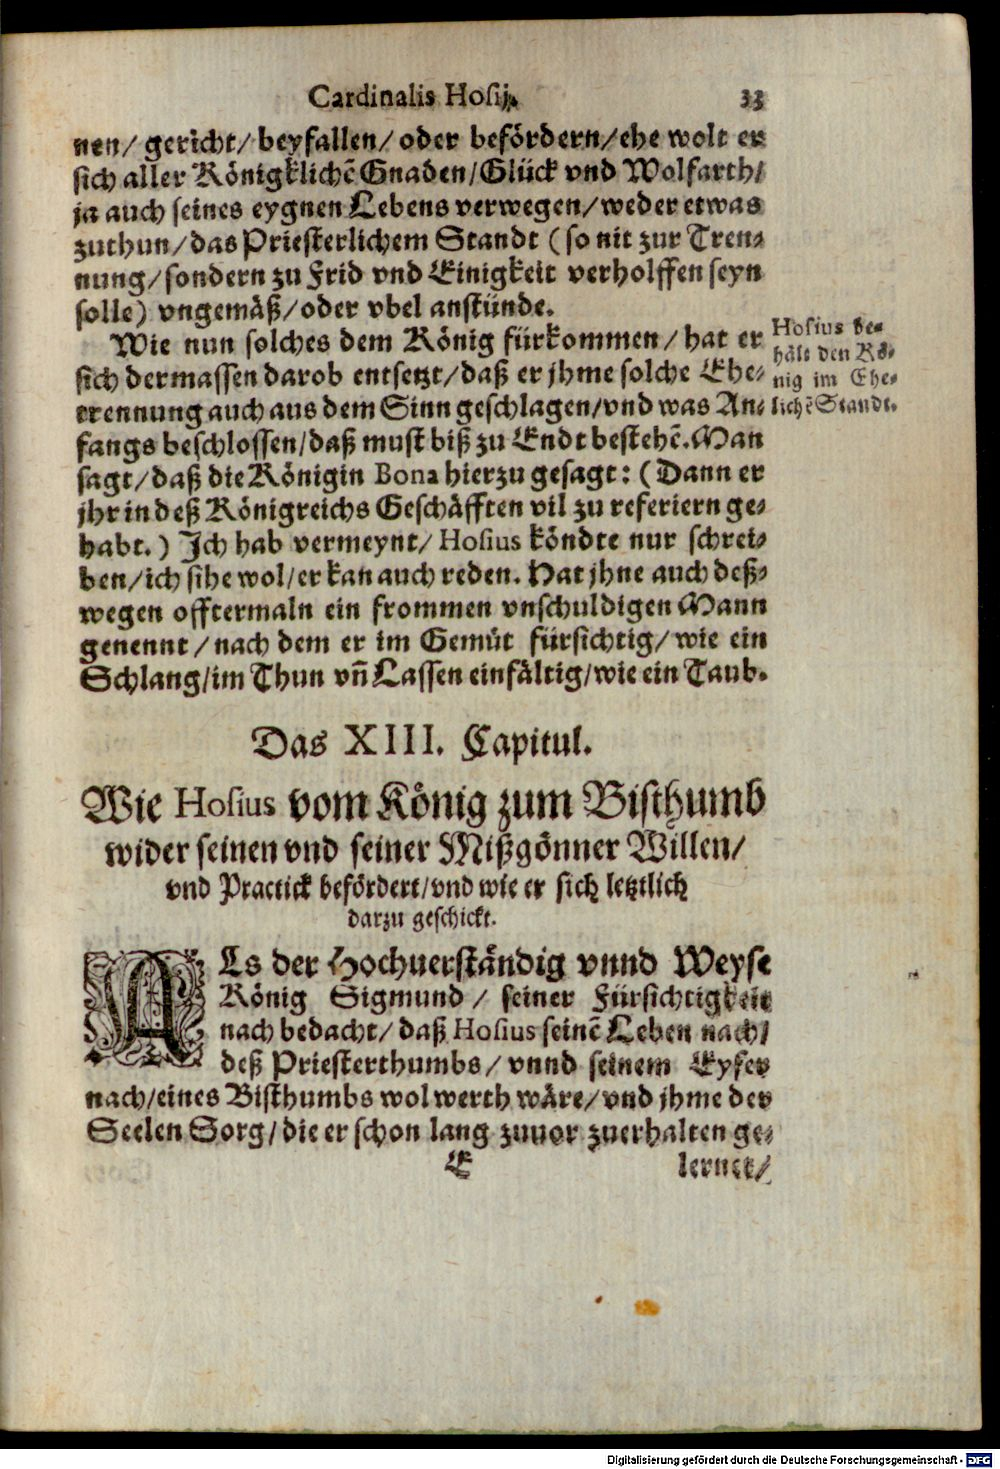 Cardinalis Hosij. 33
nen/ gericht/ beyfallen/ oder befördern/ ehe wolt er
sich aller Königklichẽ Gnaden/ Glück vnd Wolfarth/
ja auch seines eygnen Lebens verwegen/ weder etwas
zuthun/ das Priesterlichem Standt (so nit zur Tren-
nung/ sondern zu Frid vnd Einigkeit verholffen seyn
solle) vngemäß/ oder vbel anstünde.
Wie nun solches dem König fürkommen/ hat er
sich dermassen darob entsetzt/ daß er jhme solche Ehe-
trennung auch aus dem Sinn geschlagen/ vnd was An-
fangs beschlossen/ daß must biß zu Endt bestehẽ. Man
sagt/ daß die Königin Bona hierzu gesagt: (Dann er
jhr in deß Königreichs Geschäfften vil zu referiern ge-
habt.) Ich hab vermeynt/ Hosius köndte nur schrei-
ben/ ich sihe wol/ er kan auch reden. Hat jhne auch deß-
wegen offtermaln ein frommen vnschuldigen Mann
genennt/ nach dem er im Gemüt fürsichtig/ wie ein
Schlang/ im Thun vñ Lassen einfältig/ wie ein Taub.
Hosius be-
hält den Kö-
nig im Ehe-
lichẽ Standt.
Das XIII. Capitul.
Wie Hosius vom König zum Bisthumb
wider seinen vnd seiner Mißgönner Willen/
vnd Practick befördert/ vnd wie er sich letztlich
darzu geschickt.
ALs der Hochuerständig vnnd Weyse
König Sigmund/ seiner Fürsichtigkeit
nach bedacht/ daß Hosius seinẽ Leben nach/
deß Priesterthumbs/ vnnd seinem Eyfer
nach/ eines Bisthumbs wol werth wäre/ vnd jhme der
Seelen Sorg/ die er schon lang zuuor zuerhalten ge-
E lernet/
Digitalisierung gefördert durch die Deutsche Forschungsgemeinschaft - DFG